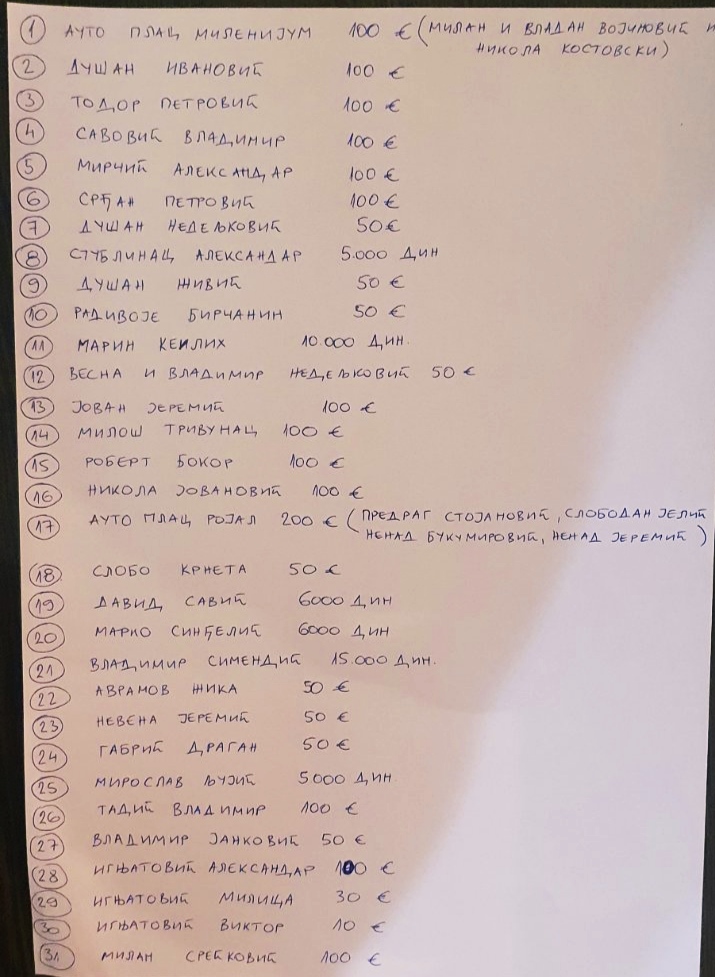 1 АУТО ПЛАЦ МИЛЕНИЈУМ 100 € (МИЛАН И ВЛАДАН ВОЈИНОВИЋ И
НИКОЛА КОСТОВСКИ)
2 ДУШАН ИВАНОВИЋ 100 €
3 ТОДОР ПЕТРОВИЋ 100 €
4 САВОВИЋ ВЛАДИМИР 100 €
5 МИРЧИЋ АЛЕКСАНДАР 100 €
6 СРЂАН ПЕТРОВИЋ 100 €
7 ДУШАН НЕДЕЉКОВИЋ 50 €
8 СТУБЛИНАЦ АЛЕКСАНДАР 5.000 ДИН
9 ДУШАН ЖИВИЋ 50 €
10 РАДИВОЈЕ БИРЧАНИН 50 €
11 МАРИН КЕИЛИХ 10.000 ДИН.
12 ВЕСНА И ВЛАДИМИР НЕДЕЉКОВИЋ 50 €
13 ЈОВАН ЈЕРЕМИЋ 100 €
14 МИЛОШ ТРИВУНАЦ 100 €
15 РОБЕРТ БОКОР 100 €
16 НИКОЛА ЈОВАНОВИЋ 100 €
17 АУТО ПЛАЦ РОЈАЛ 200 € (ПРЕДРАГ СТОЈАНОВИЋ, СЛОБОДАН ЈЕЛИЋ
НЕНАД БУКУМИРОВИЋ, НЕНАД ЈЕРЕМИЋ)
18 СЛОБО КРНЕТА 50 €
19 ДАВИД САВИЋ 6000 ДИН
20 МАРКО СИНЂЕЛИЋ 6000 ДИН
21 ВЛАДИМИР СИМЕНДИЋ 15.000 ДИН.
22 АВРАМОВ ЖИКА 50 €
23 НЕВЕНА ЈЕРЕМИЋ 50 €
24 ГАБРИЋ ДРАГАН 50 €
25 МИРОСЛАВ ЉУЈИЋ 5000 ДИН
26 ТАДИЋ ВЛАДИМИР 100 €
27 ВЛАДИМИР ЈАНКОВИЋ 50 €
28 ИГЊАТОВИЋ АЛЕКСАНДАР 100 €
29 ИГЊАТОВИЋ МИЛИЦА 30 €
30 ИГЊАТОВИЋ ВИКТОР 10 €
31 МИЛАН СРЕЋКОВИЋ 100 €